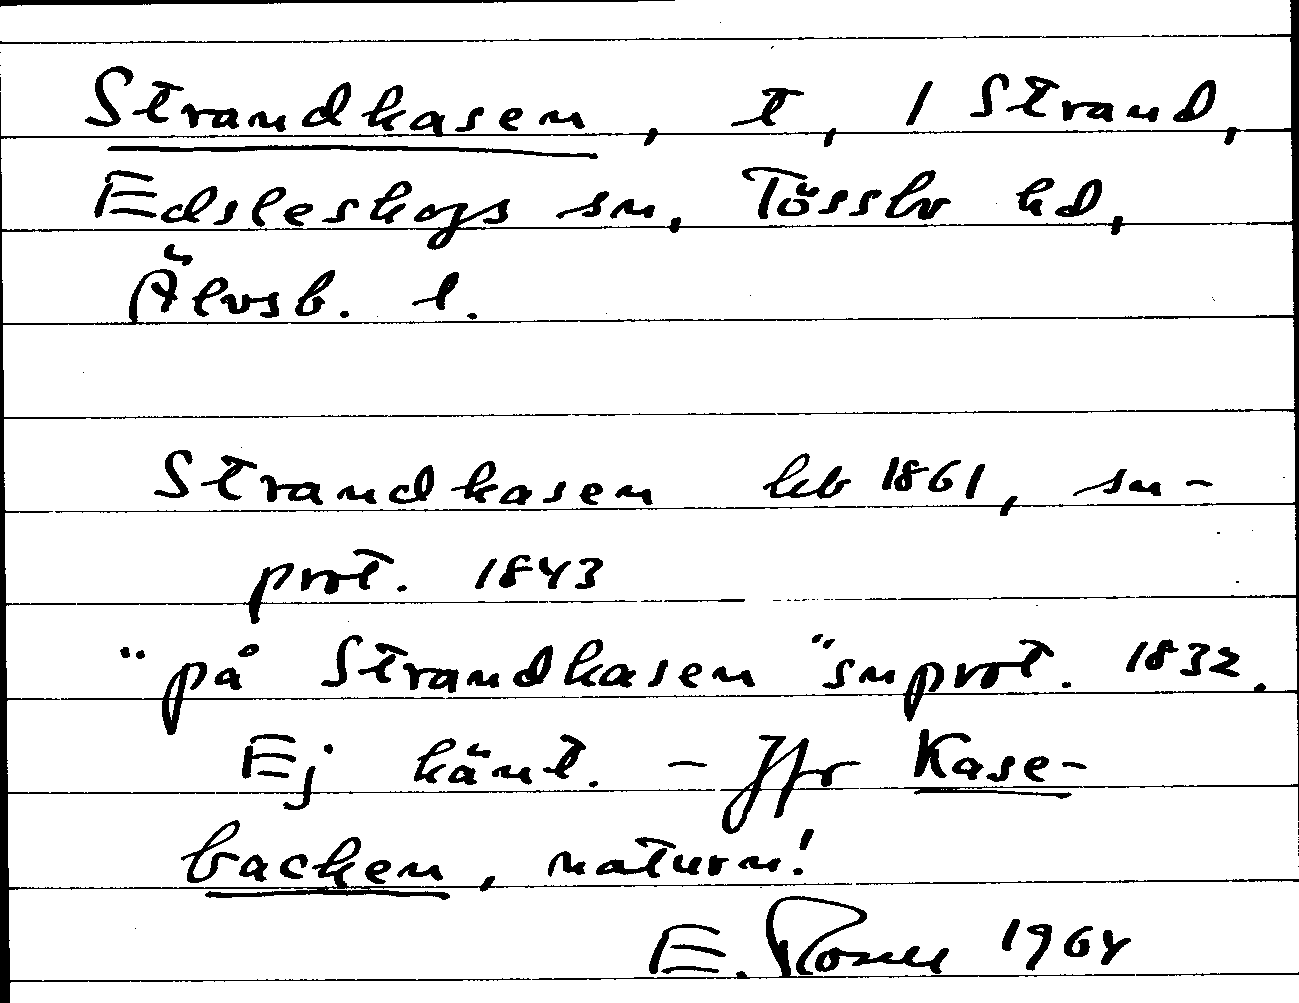 Strandkasen, t, 1 Strand,
Edsleskogs sn, Tössbo hd,
Älvsb. l.
Strandkasen lcb 1861, sn-
prot. 1843
"på Strandkasen" snprot. 1832.
Ej känt. - Jfr Kase-
backen, naturn!
E. 1964